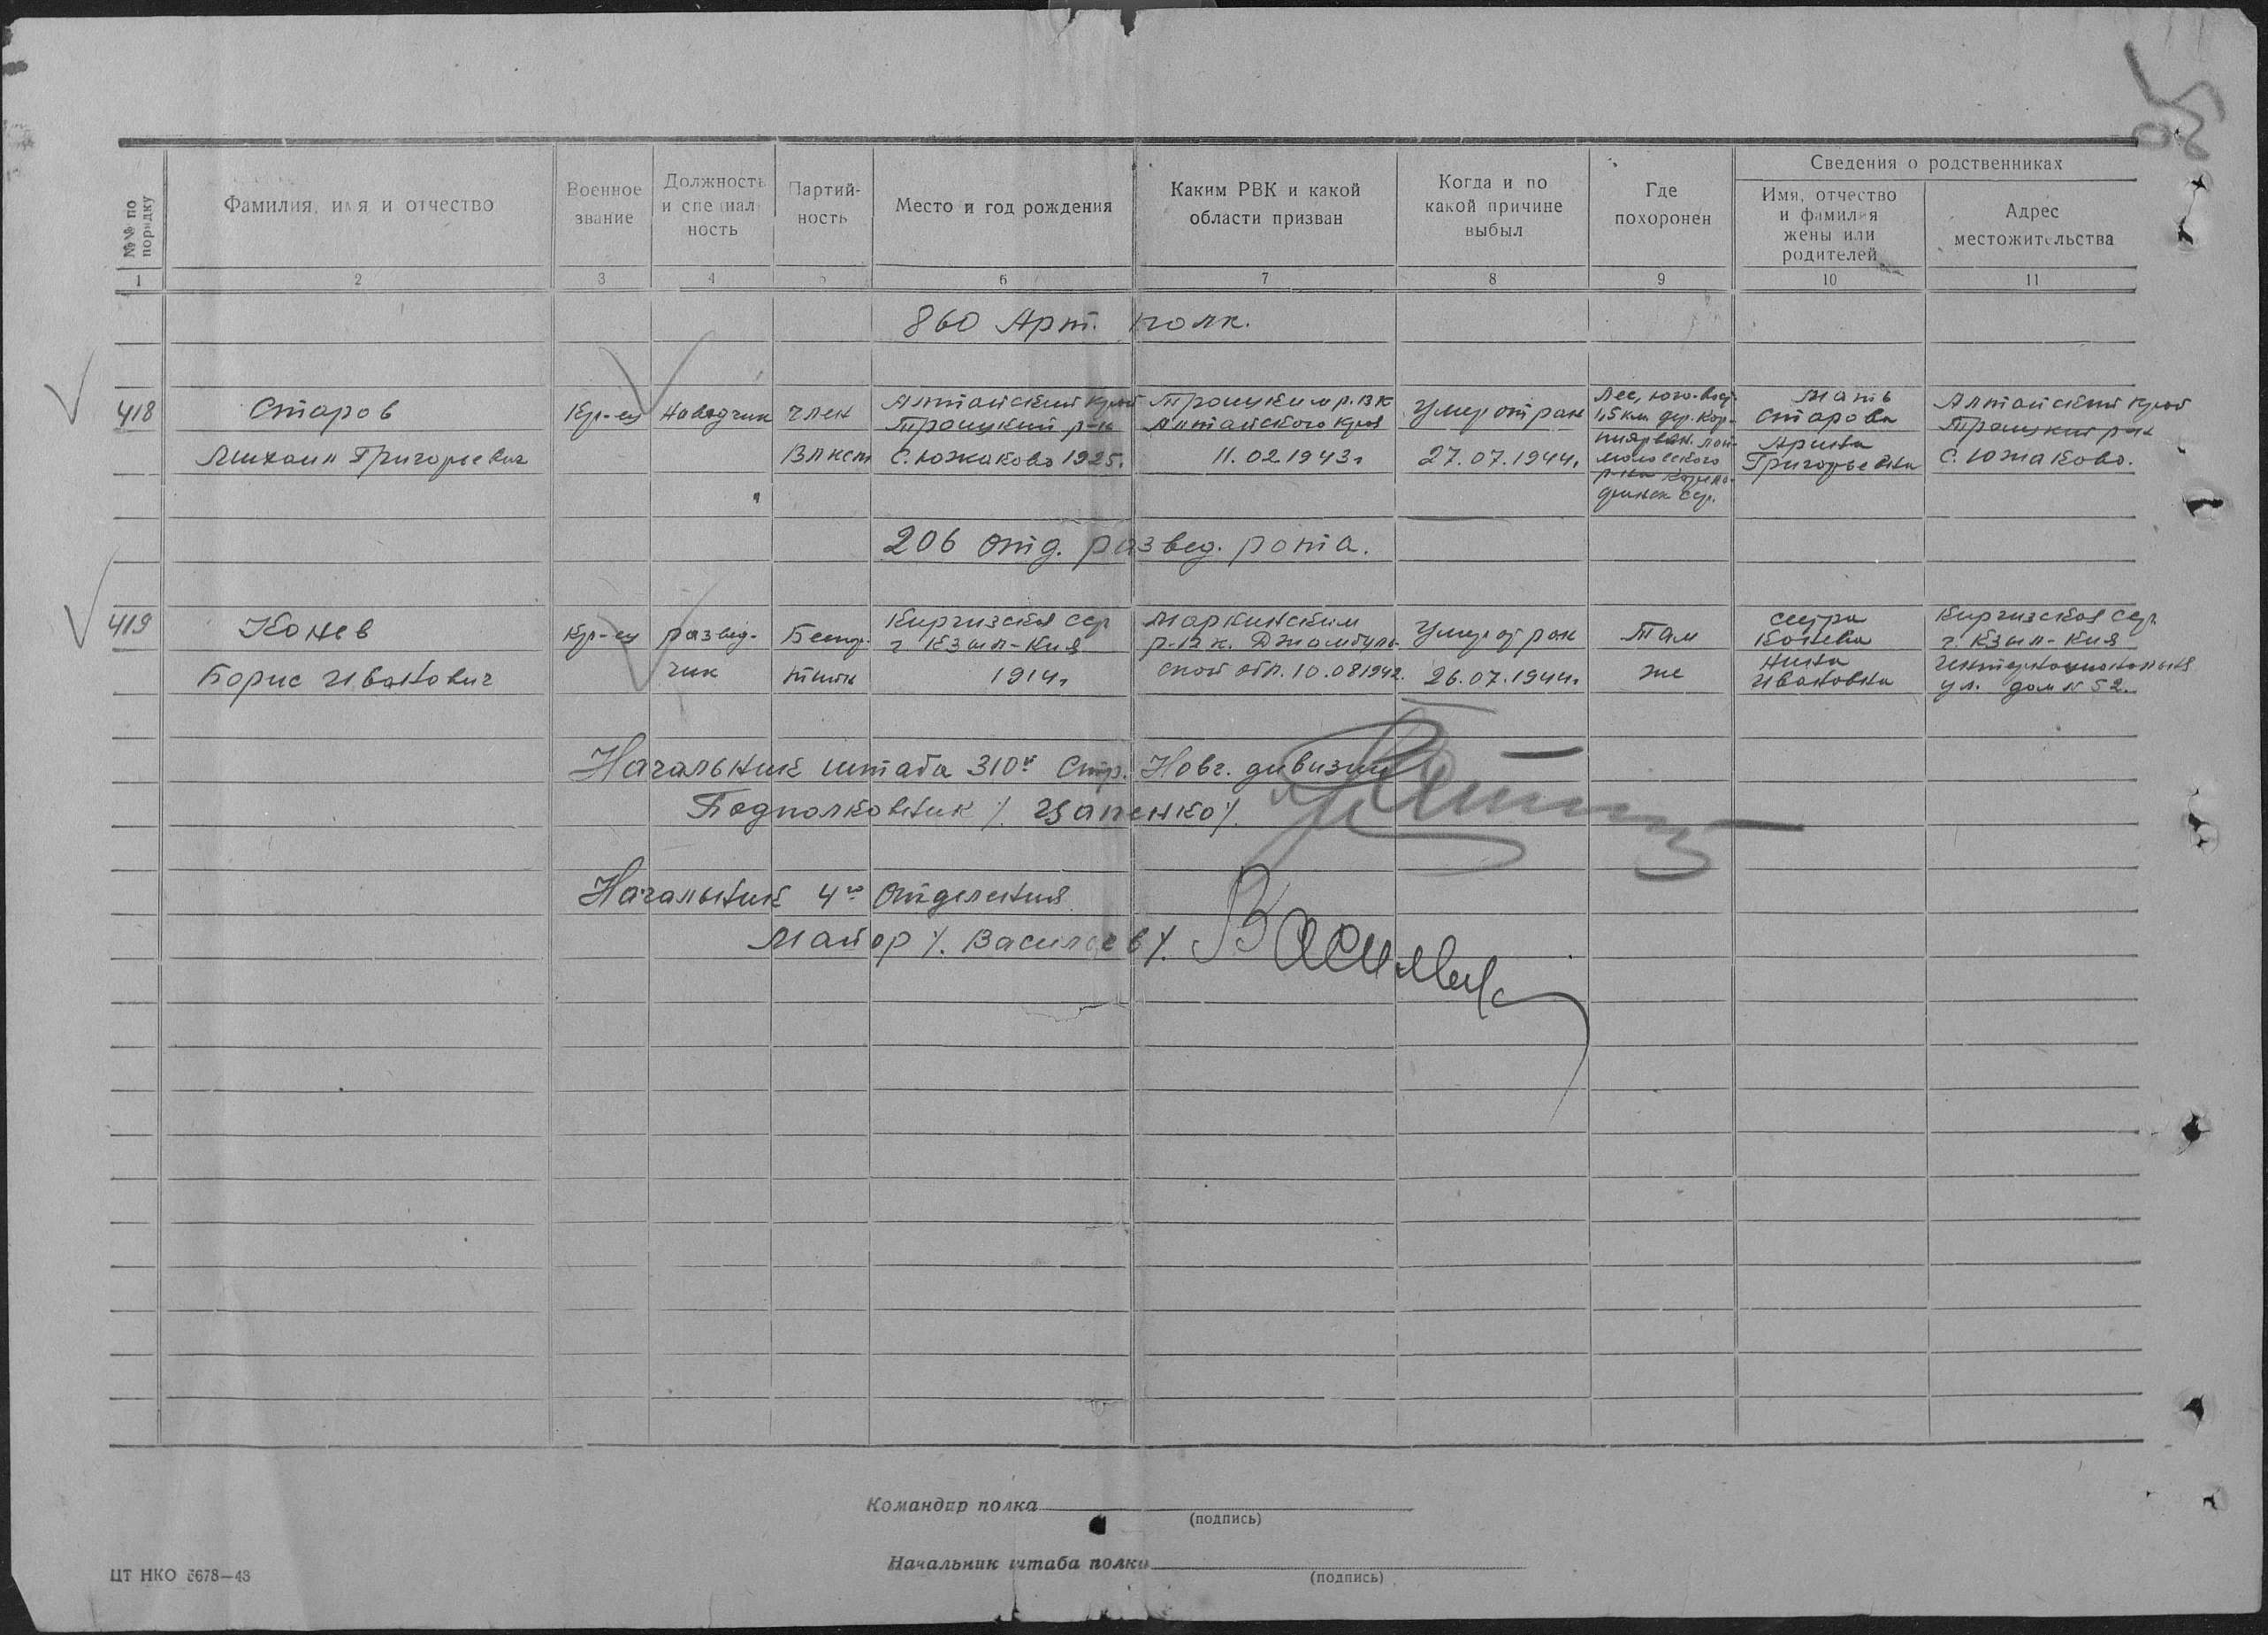 30
Сведения о родственниках
№№ по порядку
Фамилия, имя и отчество
Военное звание
Должность и специальность
Партийность
Место и год рождения
Каким РВК и какой области призван
Когда и по какой причине выбыл
Где похоронен
Имя, отчество и фамилия жены или родителей
Адрес местожительства
1 2 3 4 5 6 7 8 9 10 11
860 Арт. полк.
418
Старов
Михаил Григорьевич
Кр-ец
Наводчик
член
ВЛКСМ
Алтайский край
Троицкий р-н
с. Южаково 1925г.
Троицким р.в.к
Алтайского края
11.02.1943г
Умер от ран
27.07.1944г.
Лес, юго-вост.
1,5 км дер.
р-на
ССР.
Мать
Старова
Арина
Григорьевна
Алтайский край
Троицкий р-н
с. Южаково.
206 отд. развед. рота.
419
Конев
Борис Иванович
Кр-ец
развед-
чик
Беспар-
тийн
Киргизская ССР
г Кзыл-Кия
1914г
Маркинским
р.в.к. Джамбуль-
ской обл. 10.08.1942.
Умер от ран
26.07.1944г.
Там
же
сестра
Конева
Анна
Ивановна
Киргизская ССР.
г. Кзыл-Кия
Интернациональная
ул. дом № 52.
Начальник штаба 310й Стр. Новг. дивизии
Подполковник /. Цапенко/.
Начальник 4го Отделения
Майор /. Васильев/. Васильев
Командир полка
(подпись)
Начальник штаба полка
(подпись)
ЦТ НКО 5678—43